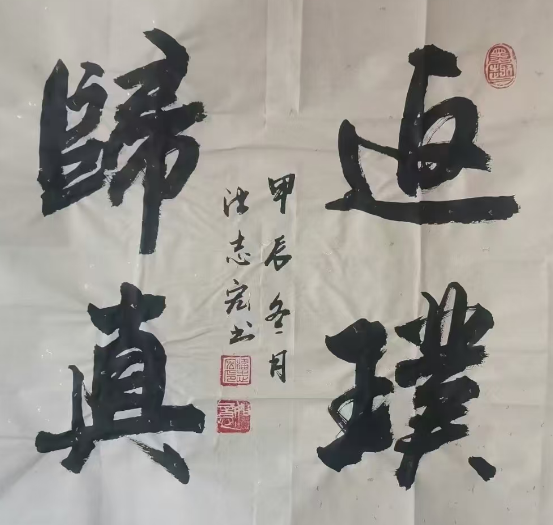 返璞
歸真
甲辰冬月
志宏书